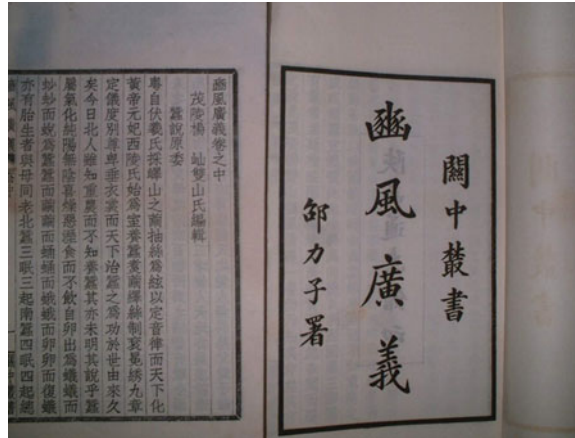 關中叢書
豳風廣義
邵力子署
豳風廣義卷之中
茂陵楊 屾雙山氏編輯
蠶說原委
粤自伏羲氏採嶧山之繭抽絲爲絃以定音律而天下化
黃帝元妃西陵氏始爲室養蠶煑繭繰絲制衮冕綉九章
定儀度別尊卑垂衣裳而天下治蠶之爲功於世由來久
矣今日北人雖知重農而不知養蠶其亦未明其說乎蠶
屬氣化純陽無陰喜燥惡溼食而不飲自卵出爲蟻蟻而
蚴蚴而蛻爲蠶蠶而繭繭而蛹蛹而蛾蛾而卵卵而復蟻
亦有胎生者與母同老北蠶三眠三起南蠶四眠四起總